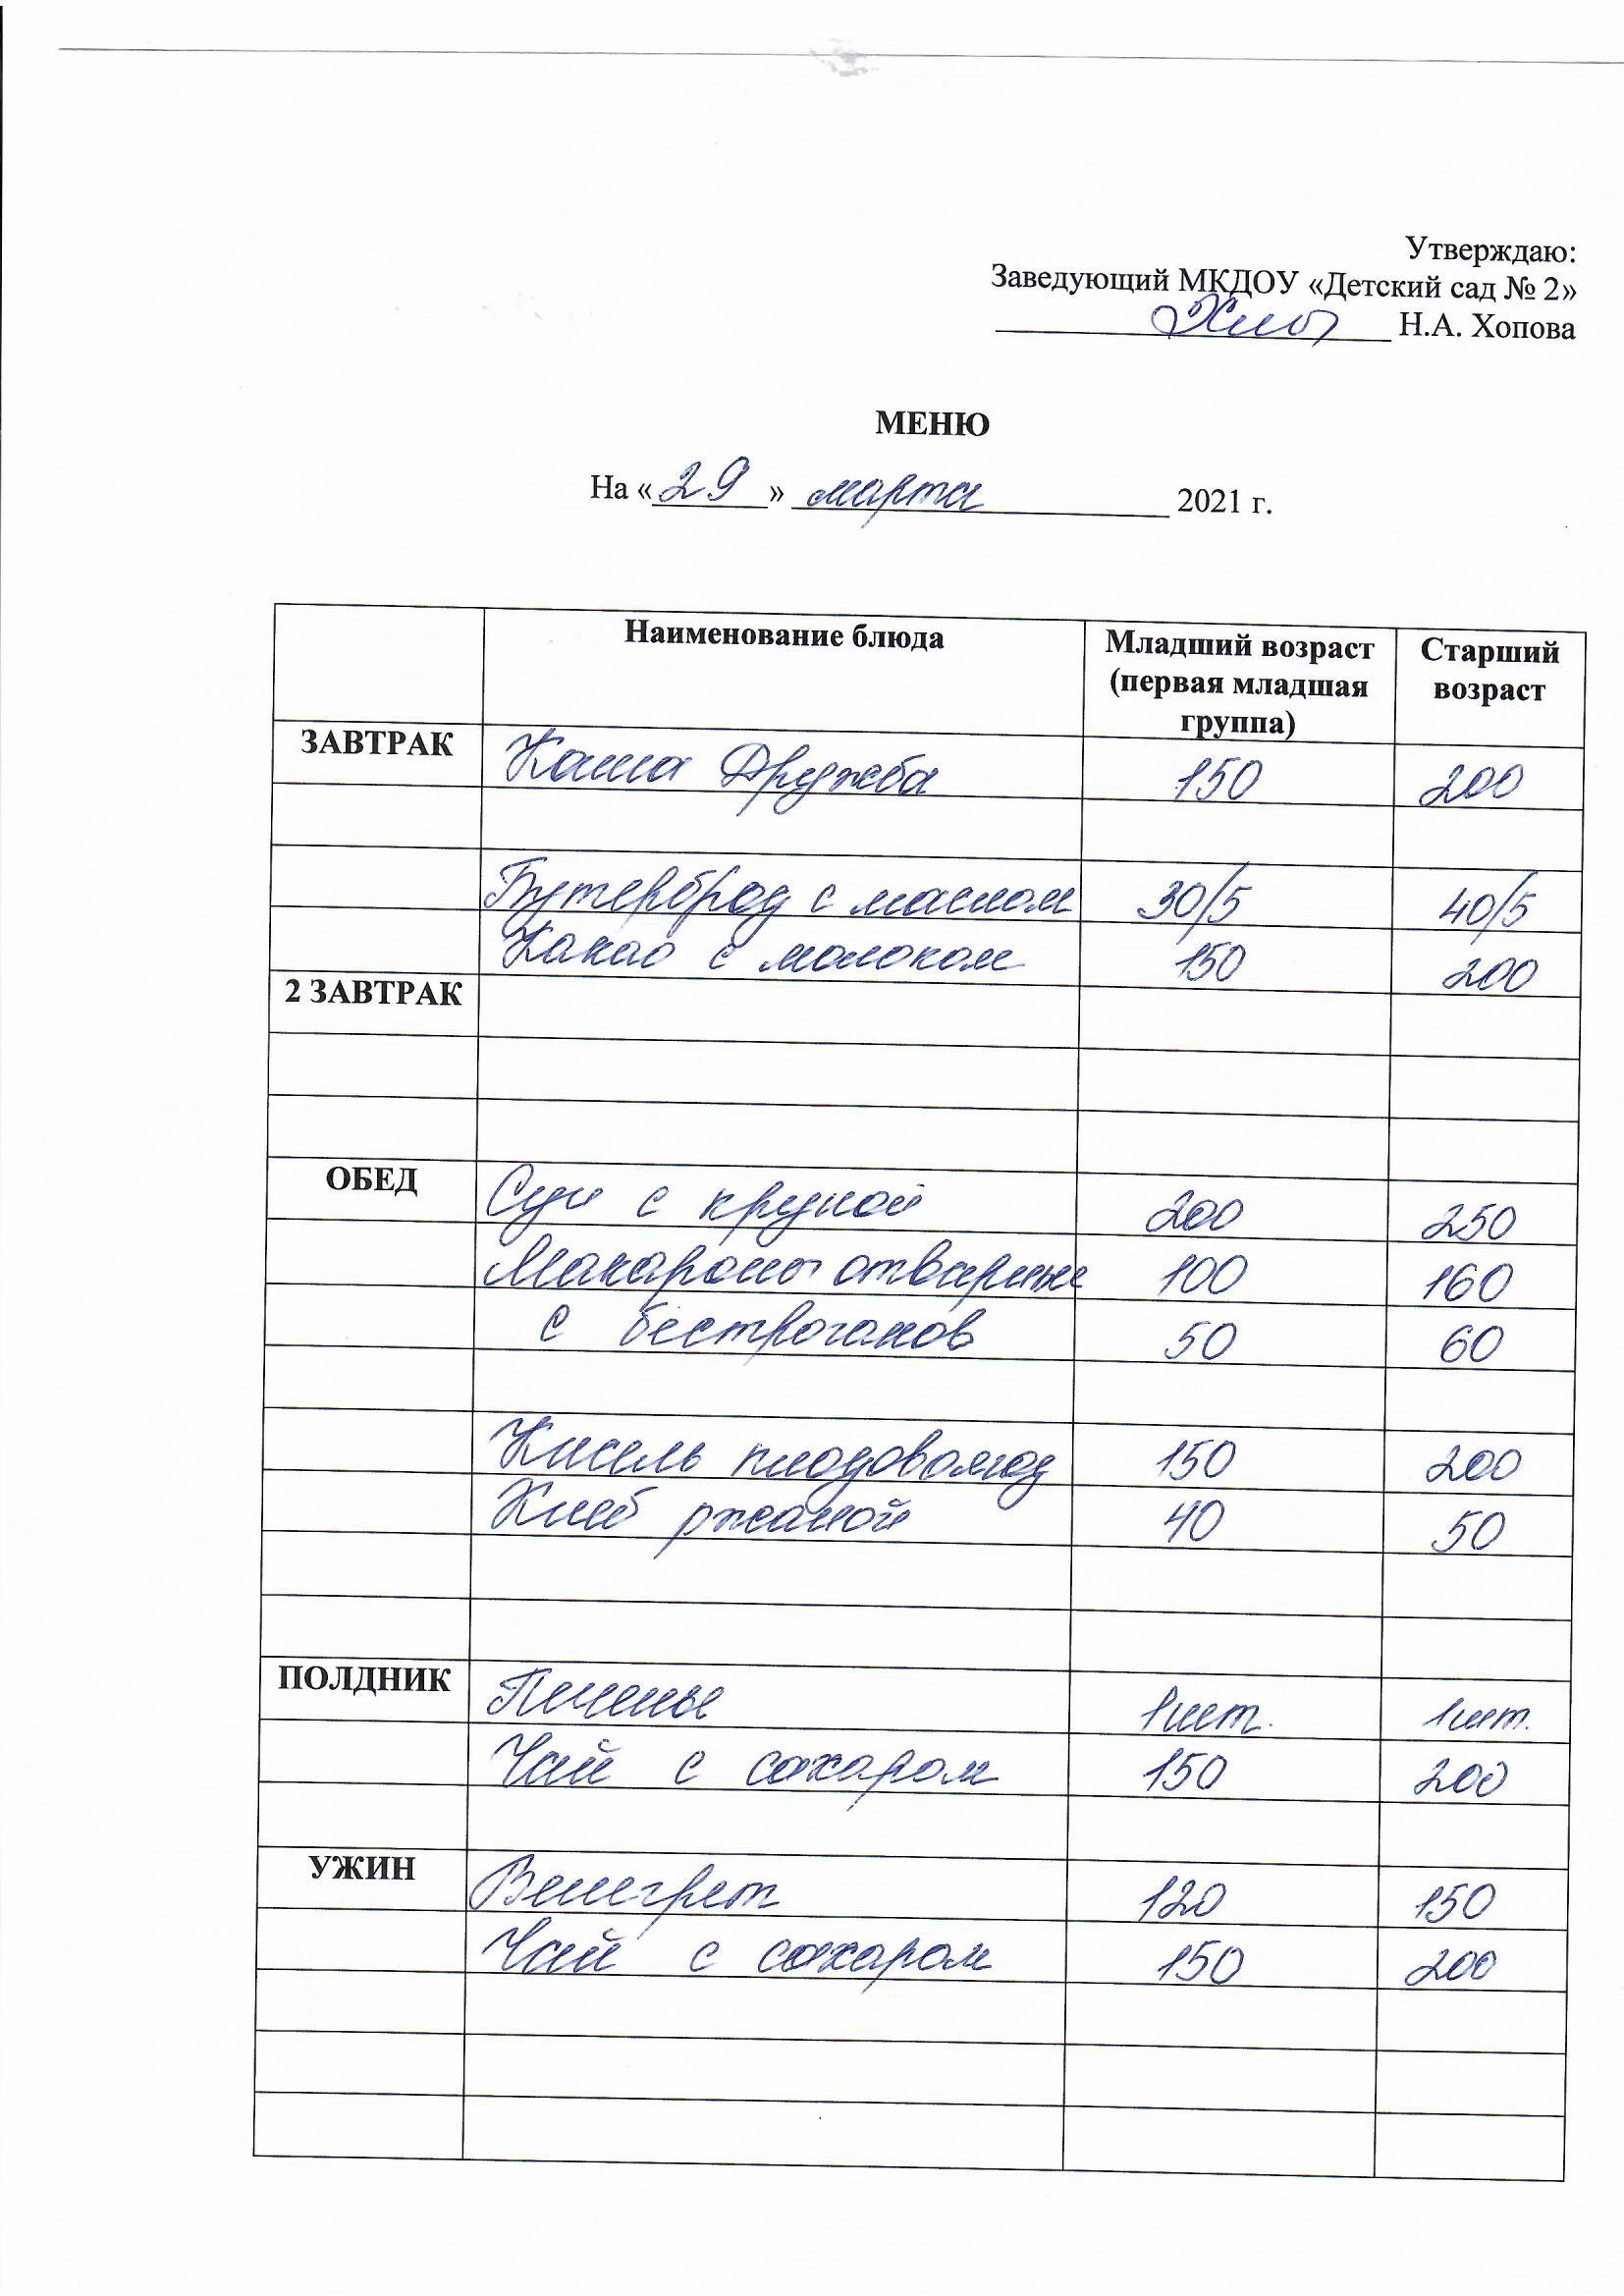 Утверждаю:
Заведующий МКДОУ «Детский сад № 2»
Н.А. Хопова
МЕНЮ
На «29» марта 2021 г.
Наименование блюда Младший возраст (первая младшая группа) Старший возраст
ЗАВТРАК Каша Дружба 150 200
Бутерброд с маслом 30/5 40/5
Какао с молоком 150 200
2 ЗАВТРАК
ОБЕД Суп с крупой 200 250
Макароны отварные 100 160
с бестроганов 50 60
Кисель плодовоягод 150 200
Хлеб ржаной 40 50
ПОЛДНИК Печенье 1шт. 1шт.
Чай с сахаром 150 200
УЖИН Венегрет 120 150
Чай с сахаром 150 200